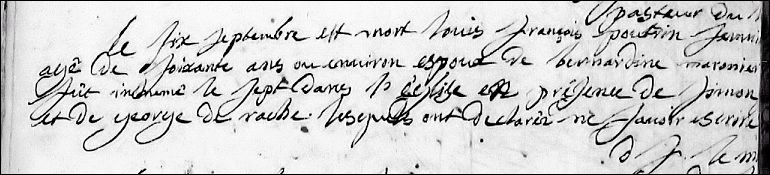 pasteur du
le six septembre est mort louis françois poutrin
agé de soixante ans ou environ espoux de bernardine maronier
fut inhumé le sept dans l'église en présence de simon
et de george de rache lesquels ont declarez ne scavoir escrire